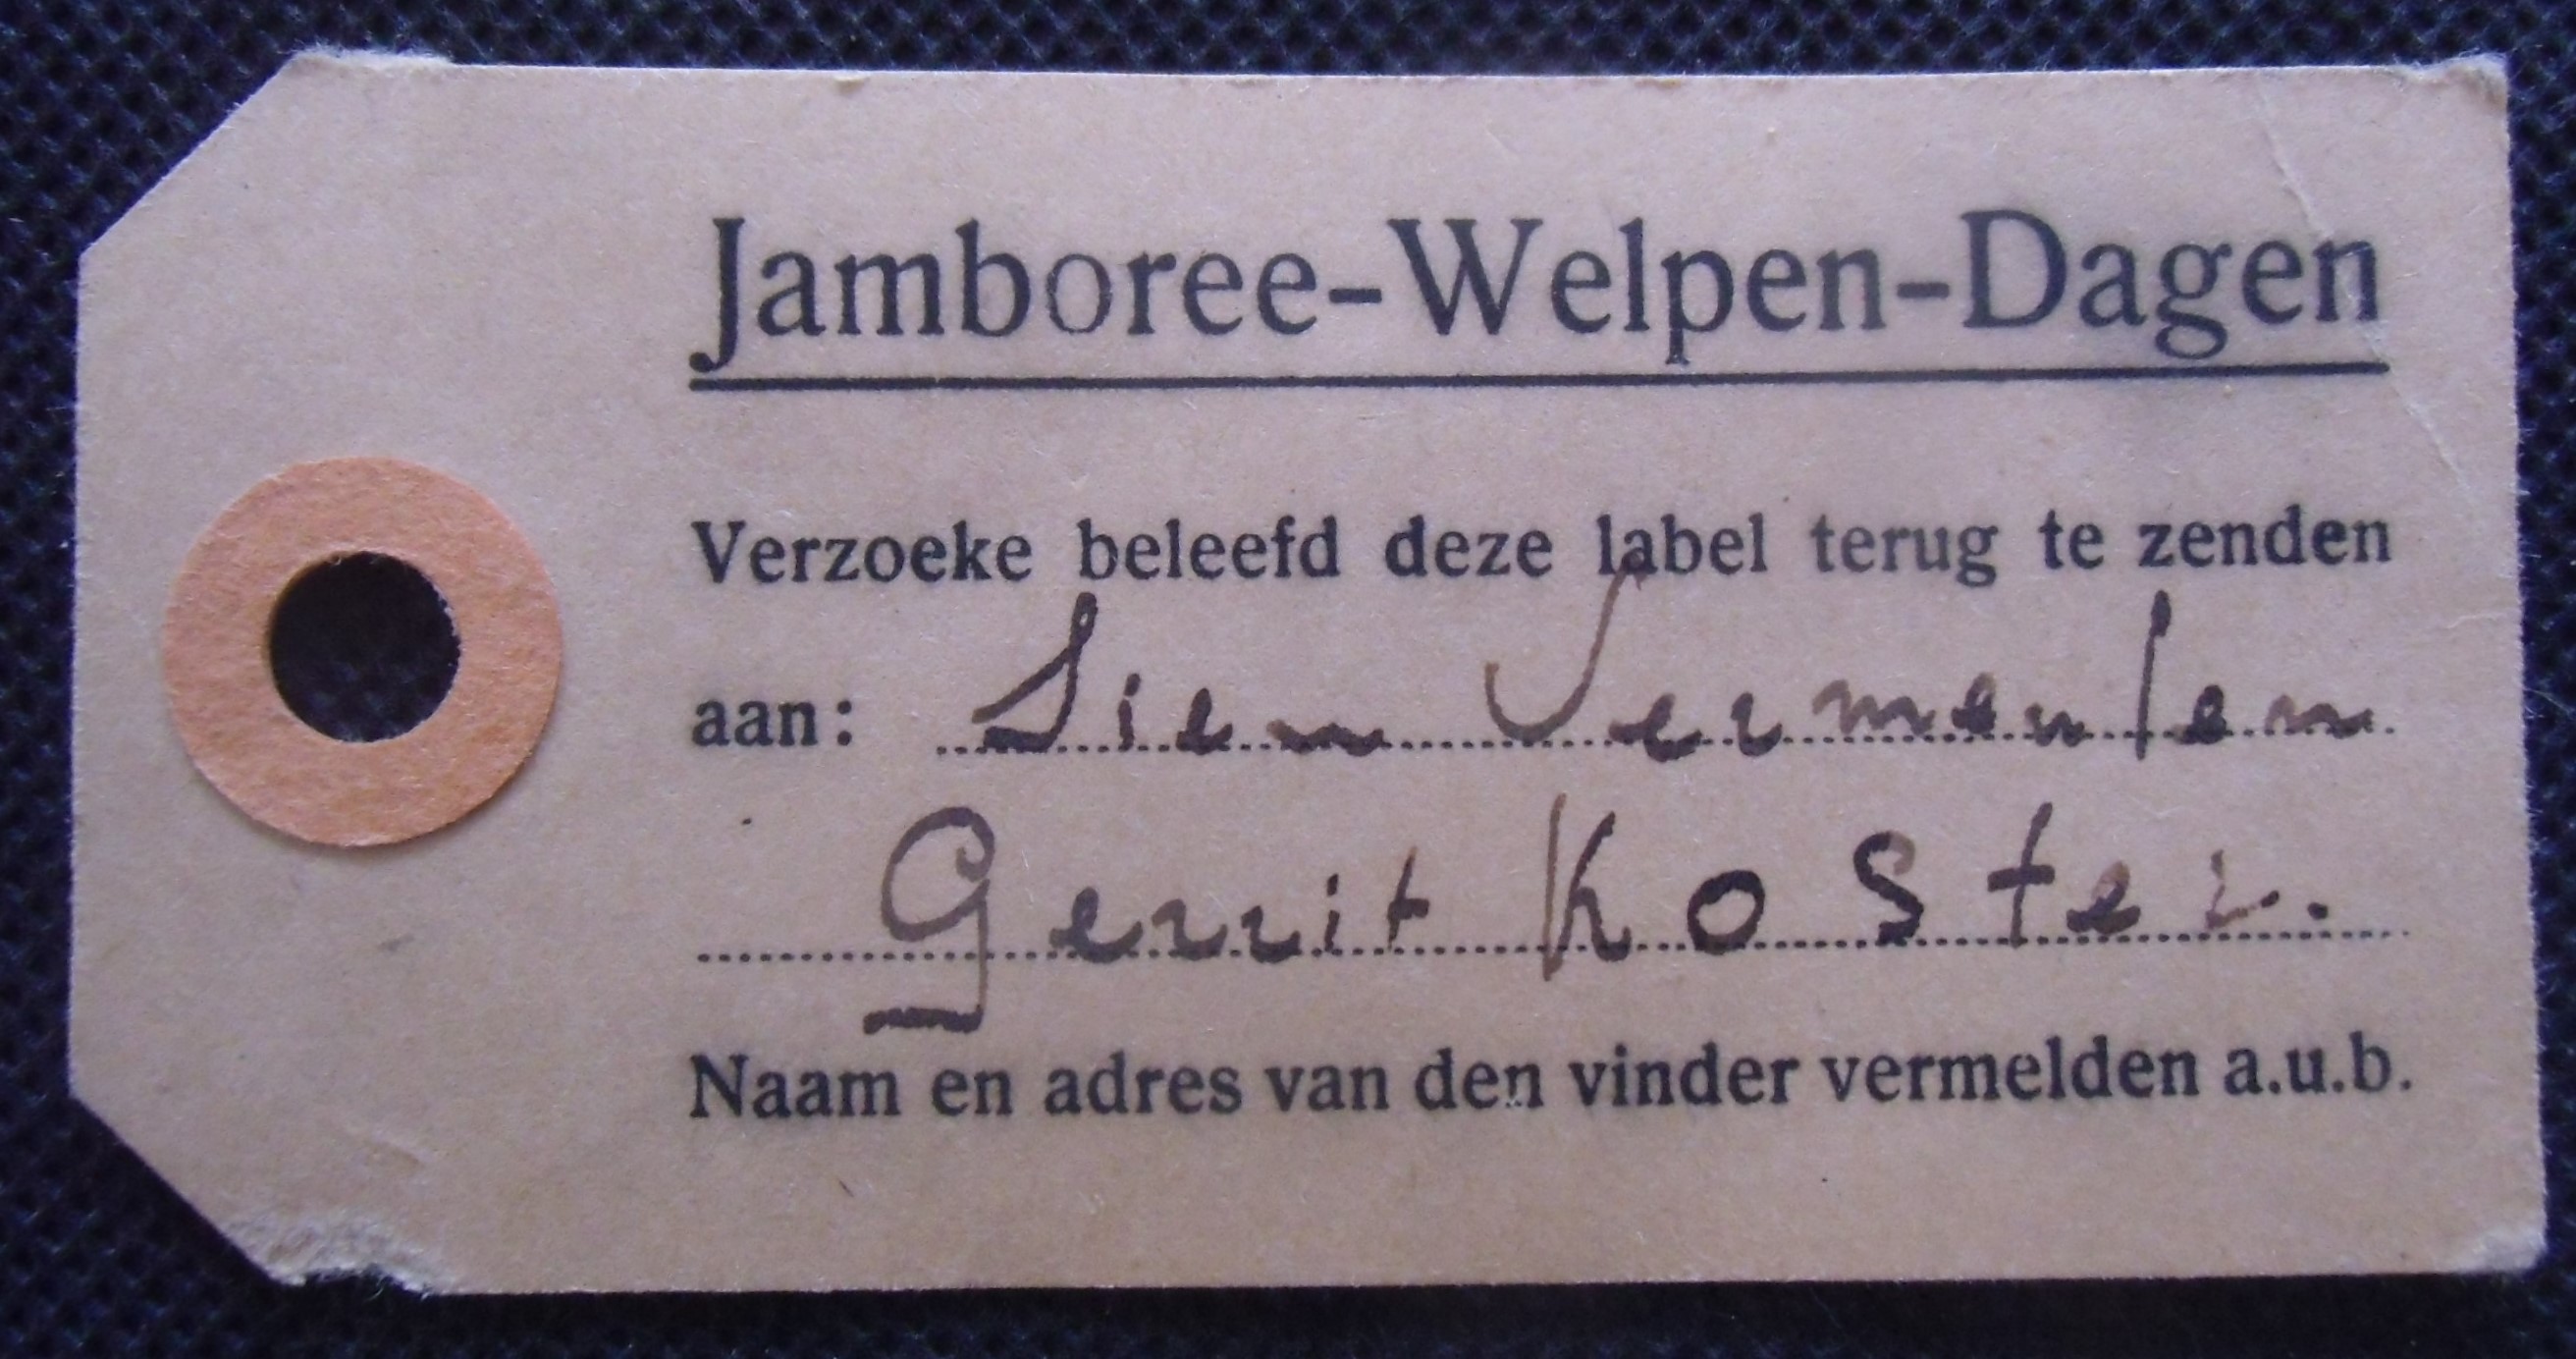 Jamboree-Welpen-Dagen
Verzoeke beleefd deze label terug te zenden
aan: Sien Vermeulen
Gerrit Koster.
Naam en adres van den vinder vermelden a.u.b.